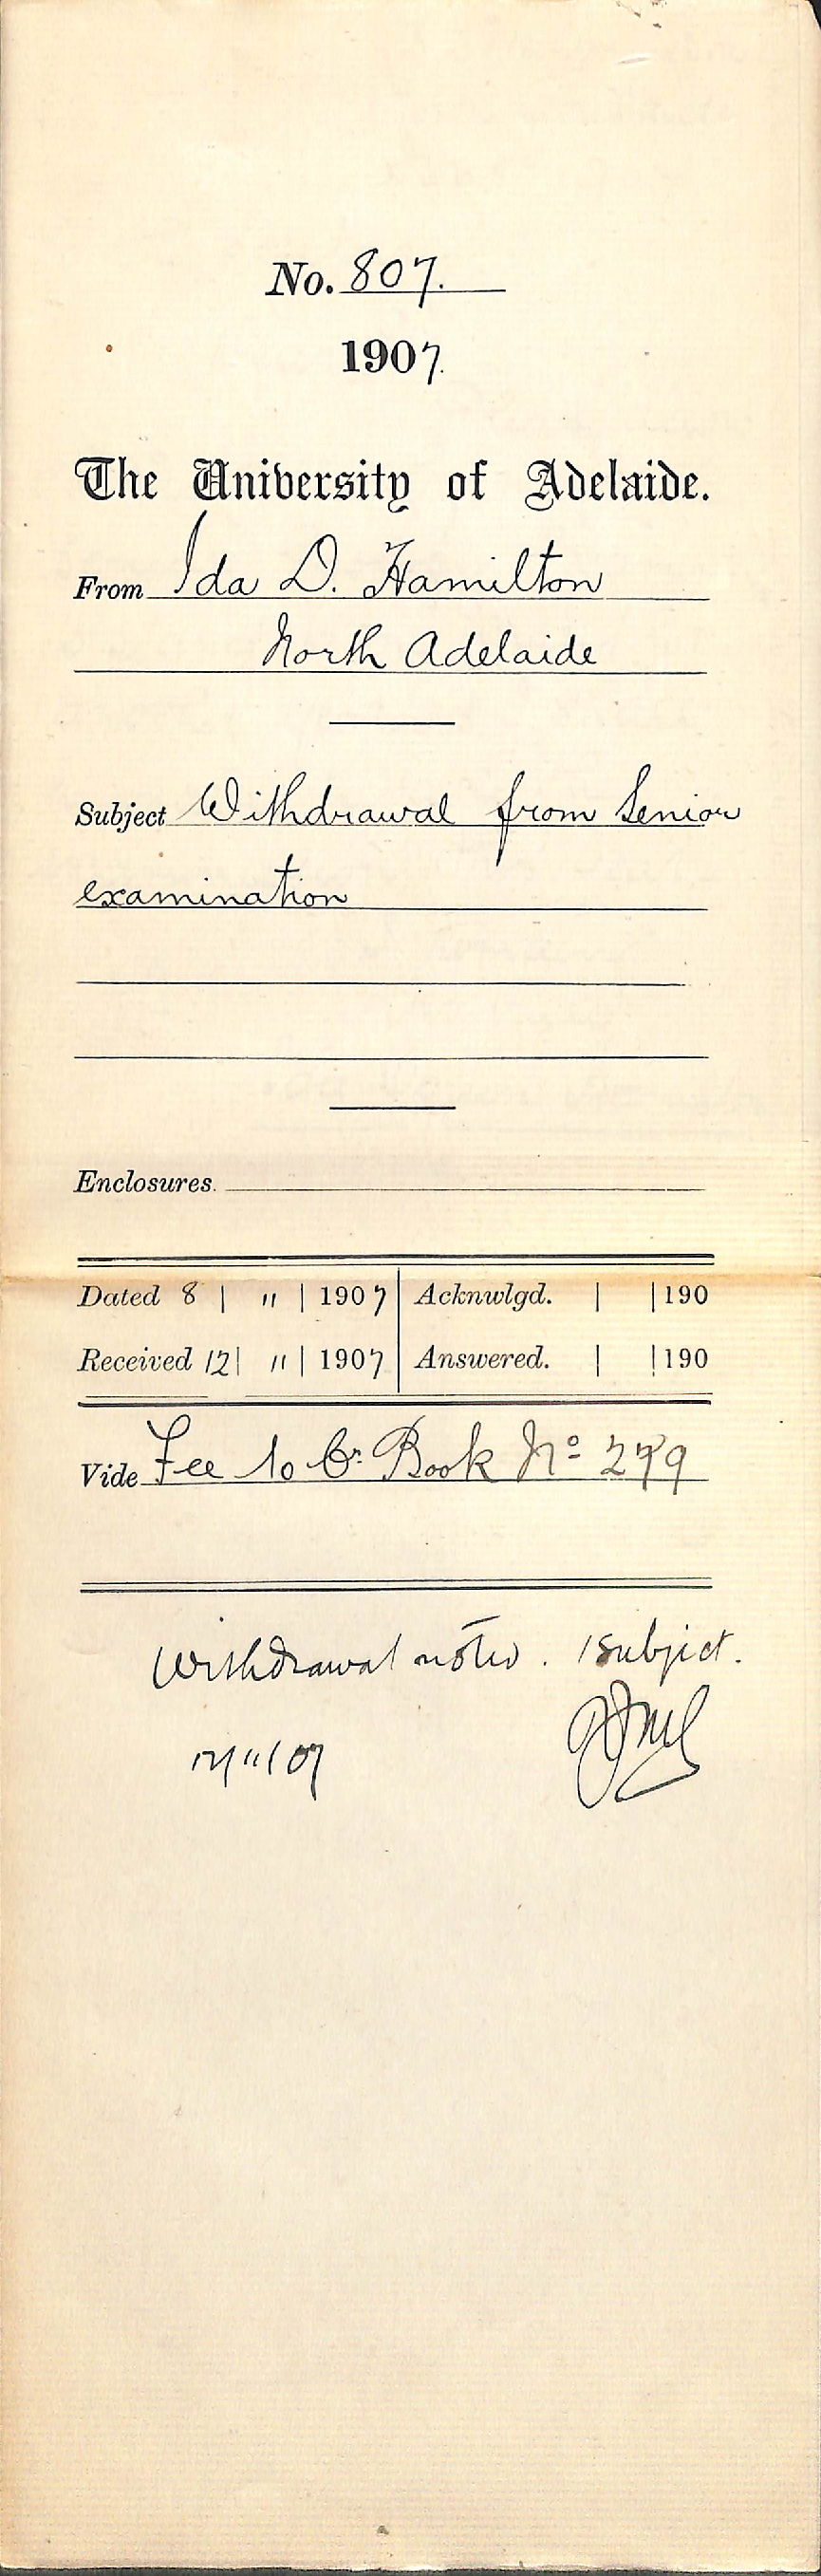 No. 807.
1907.
The University of Adelaide.
From Ida D. Hamilton
North Adelaide
Subject Withdrawal from Senior
examination
Enclosures.
Dated 8 | 11 | 1907 | Acknwlgd. | | 190
Received 12 | 11 | 1907 | Answered. | | 190
Vide Fee to Cr. Book No 279
Withdrawal noted. 1 subject.
12/11/07